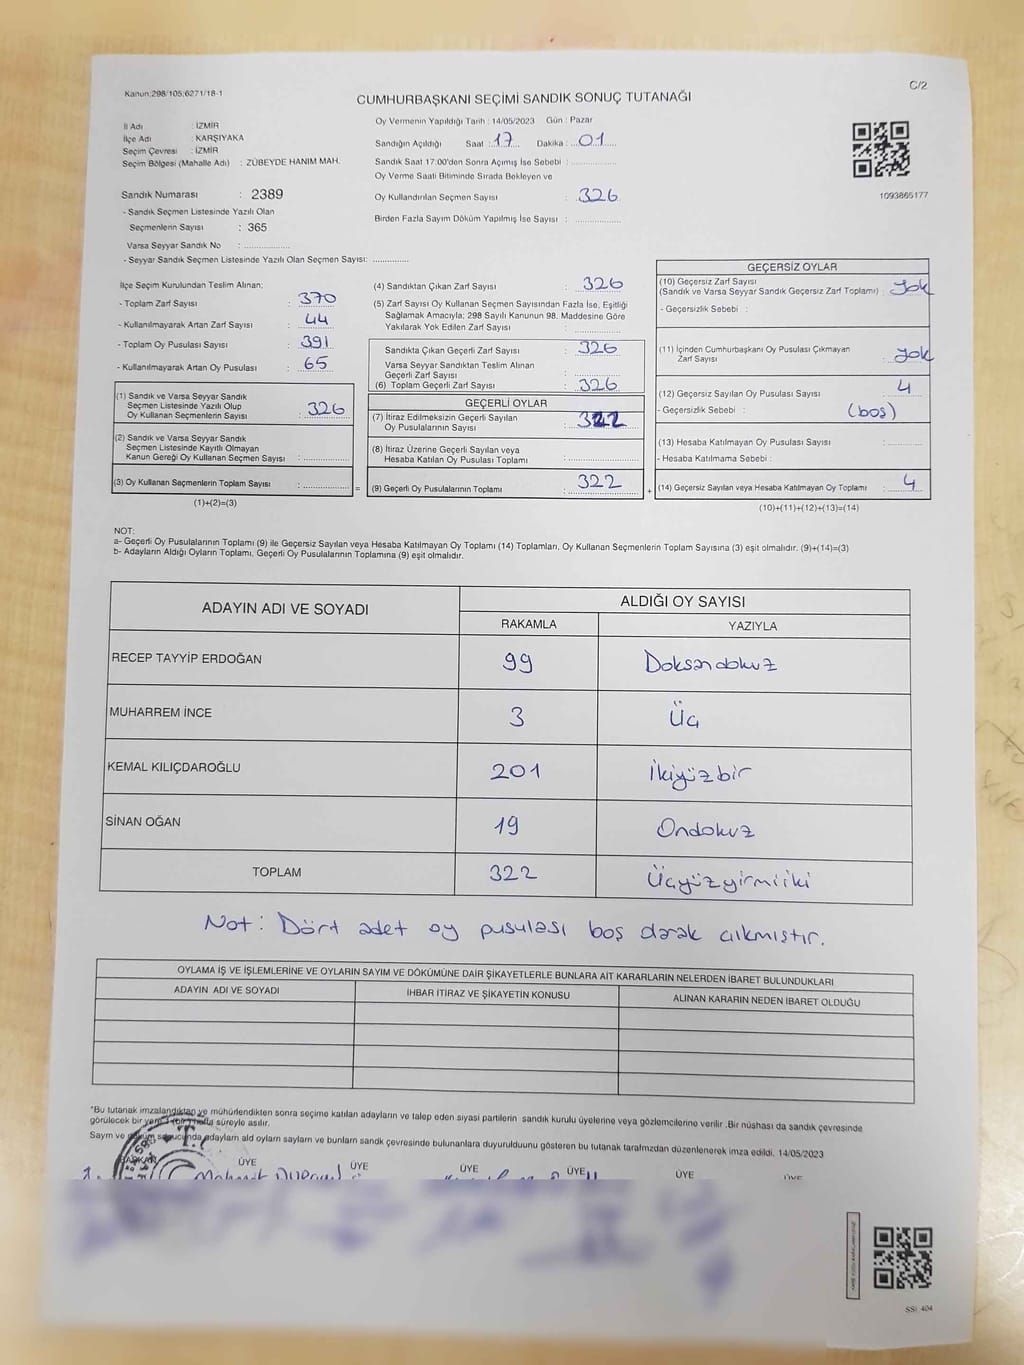 Kanun:298/105;6271/18-1
C/2
CUMHURBAŞKANI SEÇİMİ SANDIK SONUÇ TUTANAĞI
İl Adı : İZMİR
İlçe Adı : KARŞIYAKA
Seçim Çevresi : İZMİR
Seçim Bölgesi (Mahalle Adı) : ZÜBEYDE HANIM MAH.
Sandık Numarası : 2389
- Sandık Seçmen Listesinde Yazılı Olan
Seçmenlerin Sayısı : 365
Varsa Seyyar Sandık No :
- Seyyar Sandık Seçmen Listesinde Yazılı Olan Seçmen Sayısı:
Oy Vermenin Yapıldığı Tarih : 14/05/2023 Gün : Pazar
Sandığın Açıldığı Saat : 17 Dakika : 01
Sandık Saat 17:00'den Sonra Açımış İse Sebebi :
Oy Verme Saati Bitiminde Sırada Bekleyen ve
Oy Kullandırılan Seçmen Sayısı : 326
Birden Fazla Sayım Döküm Yapılmış İse Sayısı :
1093865177
İlçe Seçim Kurulundan Teslim Alınan;
- Toplam Zarf Sayısı : 370
- Kullanılmayarak Artan Zarf Sayısı : 44
- Toplam Oy Pusulası Sayısı : 391
- Kullanılmayarak Artan Oy Pusulası : 65
(1) Sandık ve Varsa Seyyar Sandık
Seçmen Listesinde Yazılı Olup
Oy Kullanan Seçmenlerin Sayısı : 326
(2) Sandık ve Varsa Seyyar Sandık
Seçmen Listesinde Kayıtlı Olmayan
Kanun Gereği Oy Kullanan Seçmen Sayısı :
(3) Oy Kullanan Seçmenlerin Toplam Sayısı : =
(1)+(2)=(3)
(4) Sandıktan Çıkan Zarf Sayısı : 326
(5) Zarf Sayısı Oy Kullanan Seçmen Sayısından Fazla İse, Eşitliği
Sağlamak Amacıyla; 298 Sayılı Kanunun 98. Maddesine Göre
Yakılarak Yok Edilen Zarf Sayısı :
Sandıkta Çıkan Geçerli Zarf Sayısı : 326
Varsa Seyyar Sandıktan Teslim Alınan
Geçerli Zarf Sayısı :
(6) Toplam Geçerli Zarf Sayısı : 326
GEÇERLİ OYLAR
(7) İtiraz Edilmeksizin Geçerli Sayılan
Oy Pusulalarının Sayısı : 322
(8) İtiraz Üzerine Geçerli Sayılan veya
Hesaba Katılan Oy Pusulası Toplamı :
(9) Geçerli Oy Pusulalarının Toplamı : 322 +
GEÇERSİZ OYLAR
(10) Geçersiz Zarf Sayısı
(Sandık ve Varsa Seyyar Sandık Geçersiz Zarf Toplamı) : Yok
- Geçersizlik Sebebi :
(11) İçinden Cumhurbaşkanı Oy Pusulası Çıkmayan
Zarf Sayısı : Yok
(12) Geçersiz Sayılan Oy Pusulası Sayısı : 4
- Geçersizlik Sebebi : (boş)
(13) Hesaba Katılmayan Oy Pusulası Sayısı :
- Hesaba Katılmama Sebebi :
(14) Geçersiz Sayılan veya Hesaba Katılmayan Oy Toplamı : 4
(10)+(11)+(12)+(13)=(14)
NOT:
a- Geçerli Oy Pusulalarının Toplamı (9) ile Geçersiz Sayılan veya Hesaba Katılmayan Oy Toplamı (14) Toplamları, Oy Kullanan Seçmenlerin Toplam Sayısına (3) eşit olmalıdır. (9)+(14)=(3)
b- Adayların Aldığı Oyların Toplamı, Geçerli Oy Pusulalarının Toplamına (9) eşit olmalıdır.
ADAYIN ADI VE SOYADI
ALDIĞI OY SAYISI
RAKAMLA YAZIYLA
RECEP TAYYİP ERDOĞAN 99 Doksandokuz
MUHARREM İNCE 3 Üç
KEMAL KILIÇDAROĞLU 201 İkiyüzbir
SİNAN OĞAN 19 Ondokuz
TOPLAM 322 Üçyüzyirmiiki
Not: Dört adet oy pusulası boş olarak çıkmıştır.
OYLAMA İŞ VE İŞLEMLERİNE VE OYLARIN SAYIM VE DÖKÜMÜNE DAİR ŞİKAYETLERLE BUNLARA AİT KARARLARIN NELERDEN İBARET BULUNDUKLARI
ADAYIN ADI VE SOYADI İHBAR İTİRAZ VE ŞİKAYETİN KONUSU ALINAN KARARIN NEDEN İBARET OLDUĞU
*Bu tutanak imzalandıktan ve mühürlendikten sonra seçime katılan adayların ve talep eden siyasi partilerin sandık kurulu üyelerine veya gözlemcilerine verilir .Bir nüshası da sandık çevresinde
görülecek bir yere 1 (bir) hafta süreyle asılır.
Sayım ve döküm sonucunda adayların ald oyların sayların ve bunların sandık çevresinde bulunanlara duyurulduunu gösteren bu tutanak tarafmzdan düzenlenerek imza edildi. 14/05/2023
BAŞKAN ÜYE ÜYE ÜYE ÜYE ÜYE ÜYE
SSİ_404